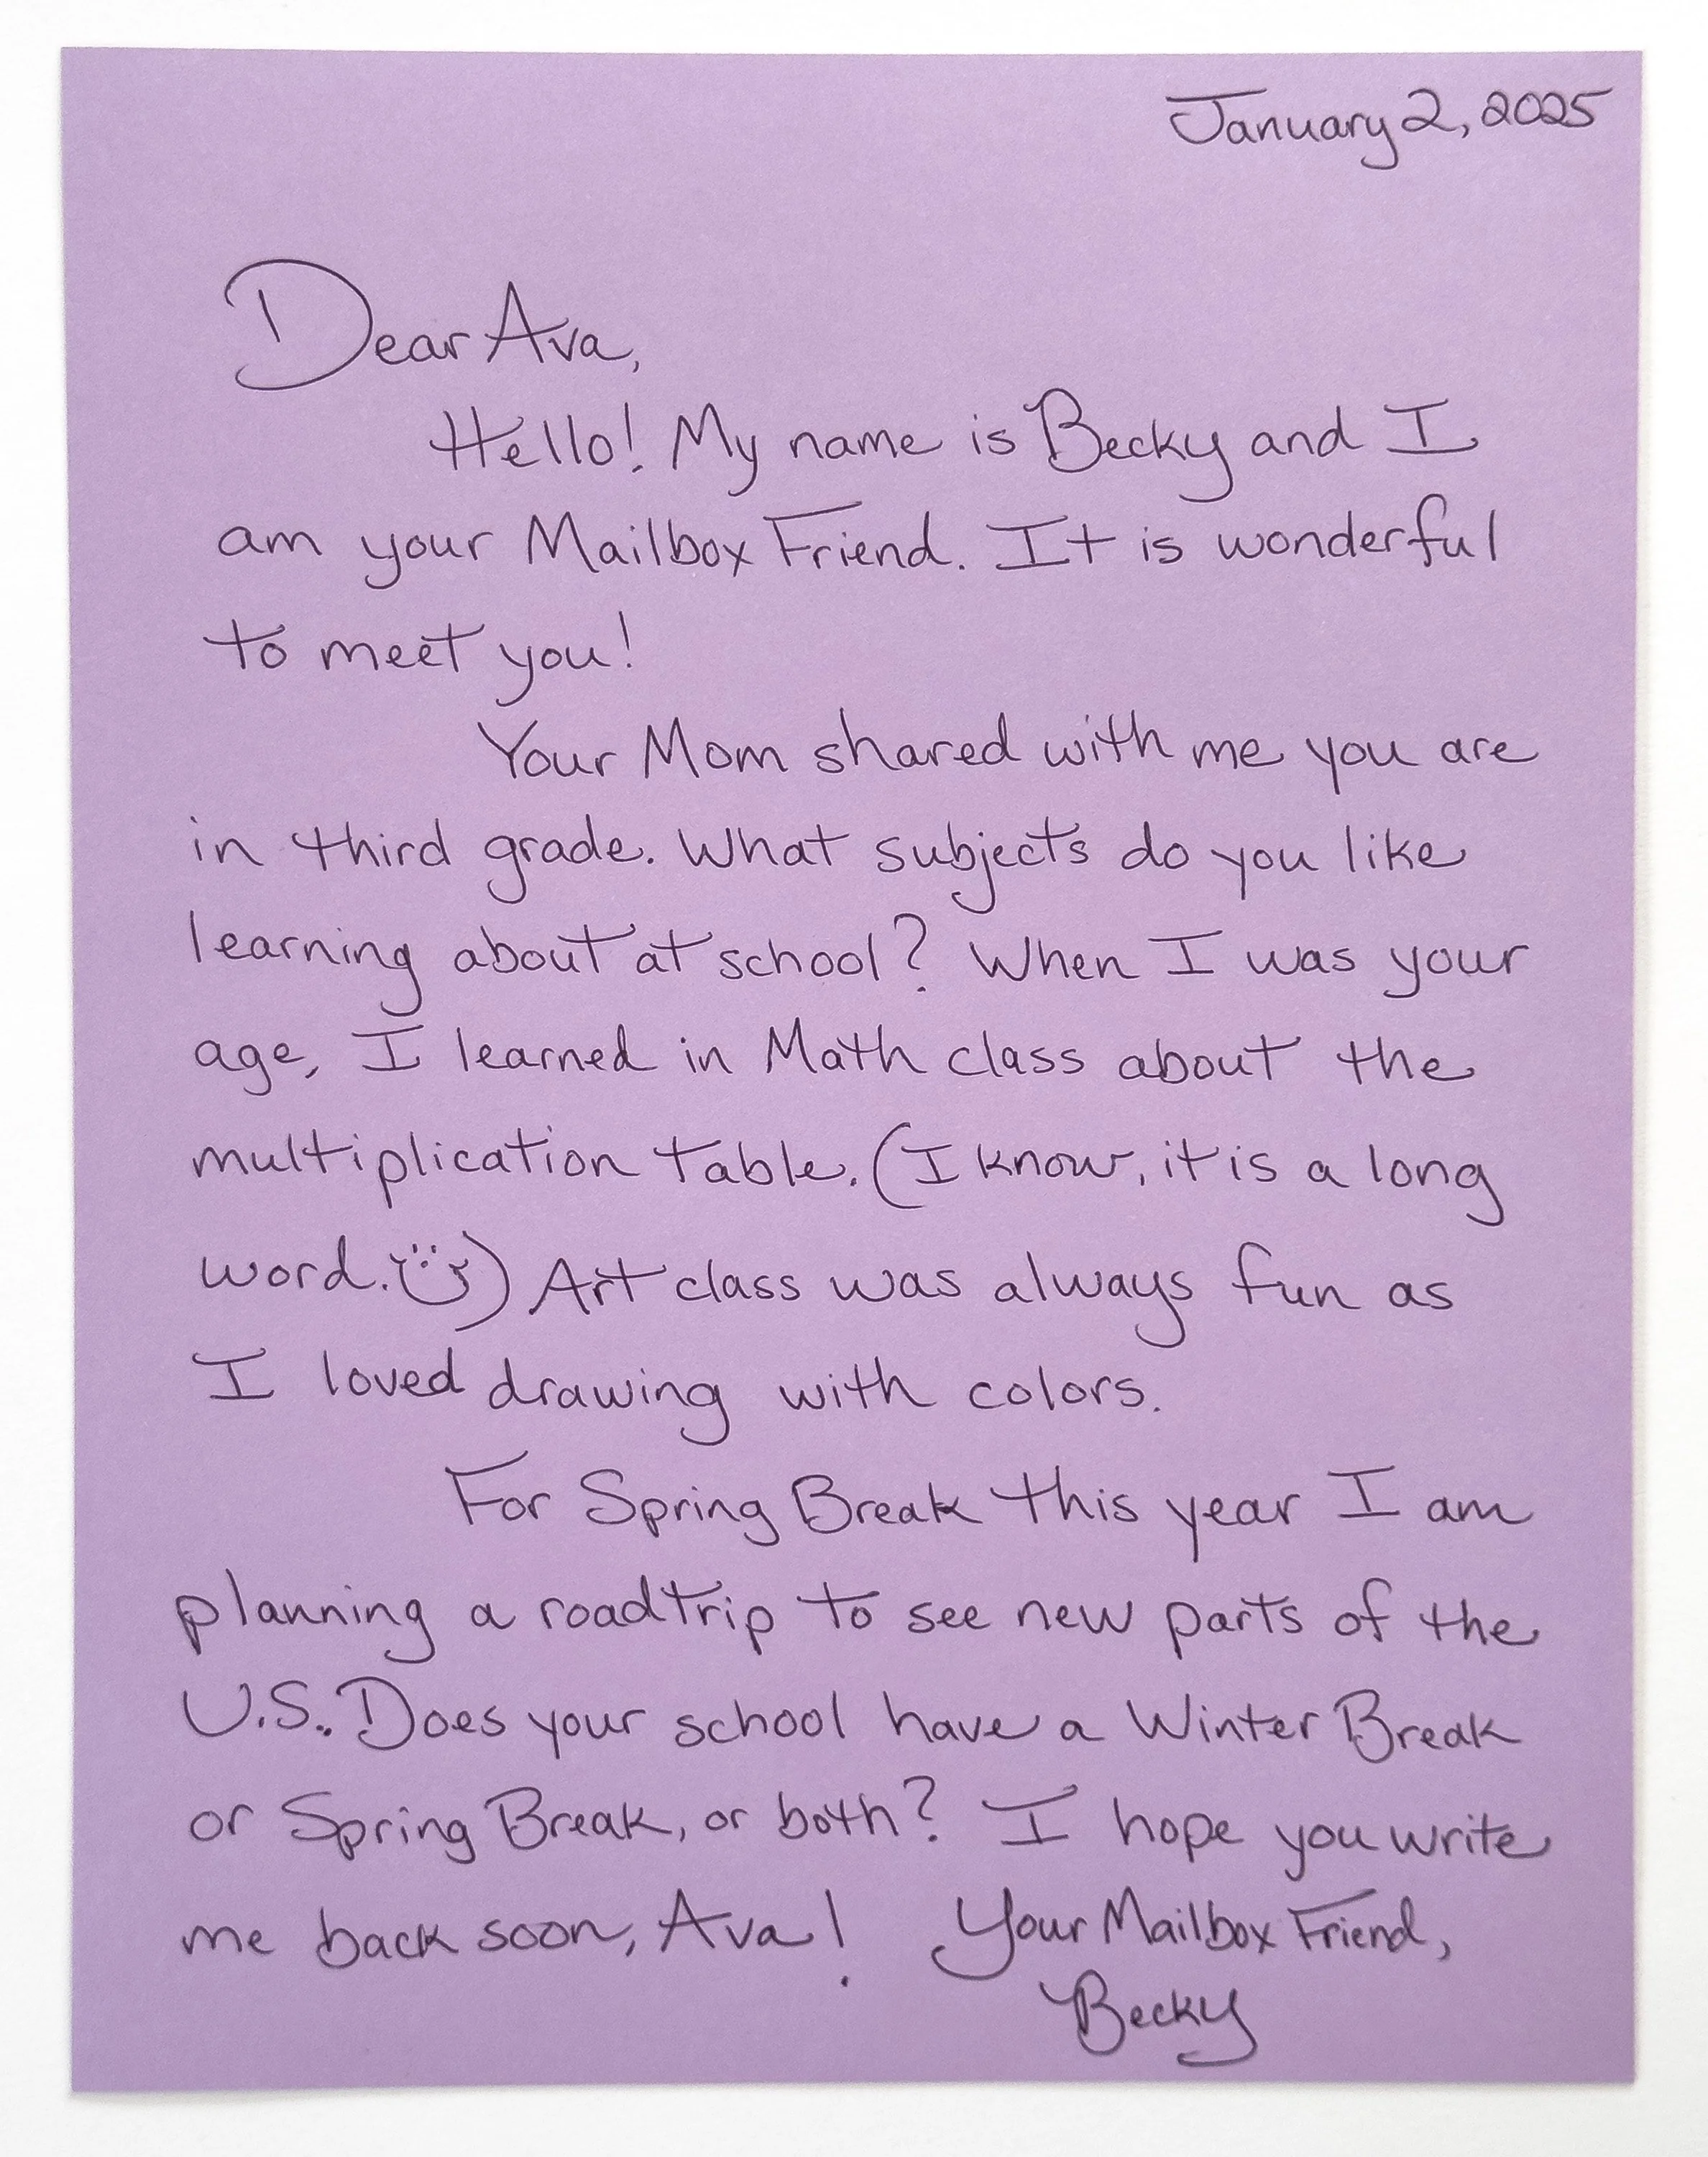 January 2, 2025
Dear Ava,
Hello! My name is Becky and I
am your Mailbox Friend. It is wonderful
to meet you!
Your Mom shared with me you are
in third grade. What subjects do you like
learning about at school? When I was your
age, I learned in Math class about the
multiplication table. (I know, it is a long
word. ) Art class was always fun as
I loved drawing with colors.
For Spring Break this year I am
planning a roadtrip to see new parts of the
U.S.. Does your school have a Winter Break
or Spring Break, or both? I hope you write
me back soon, Ava! Your Mailbox Friend,
Becky